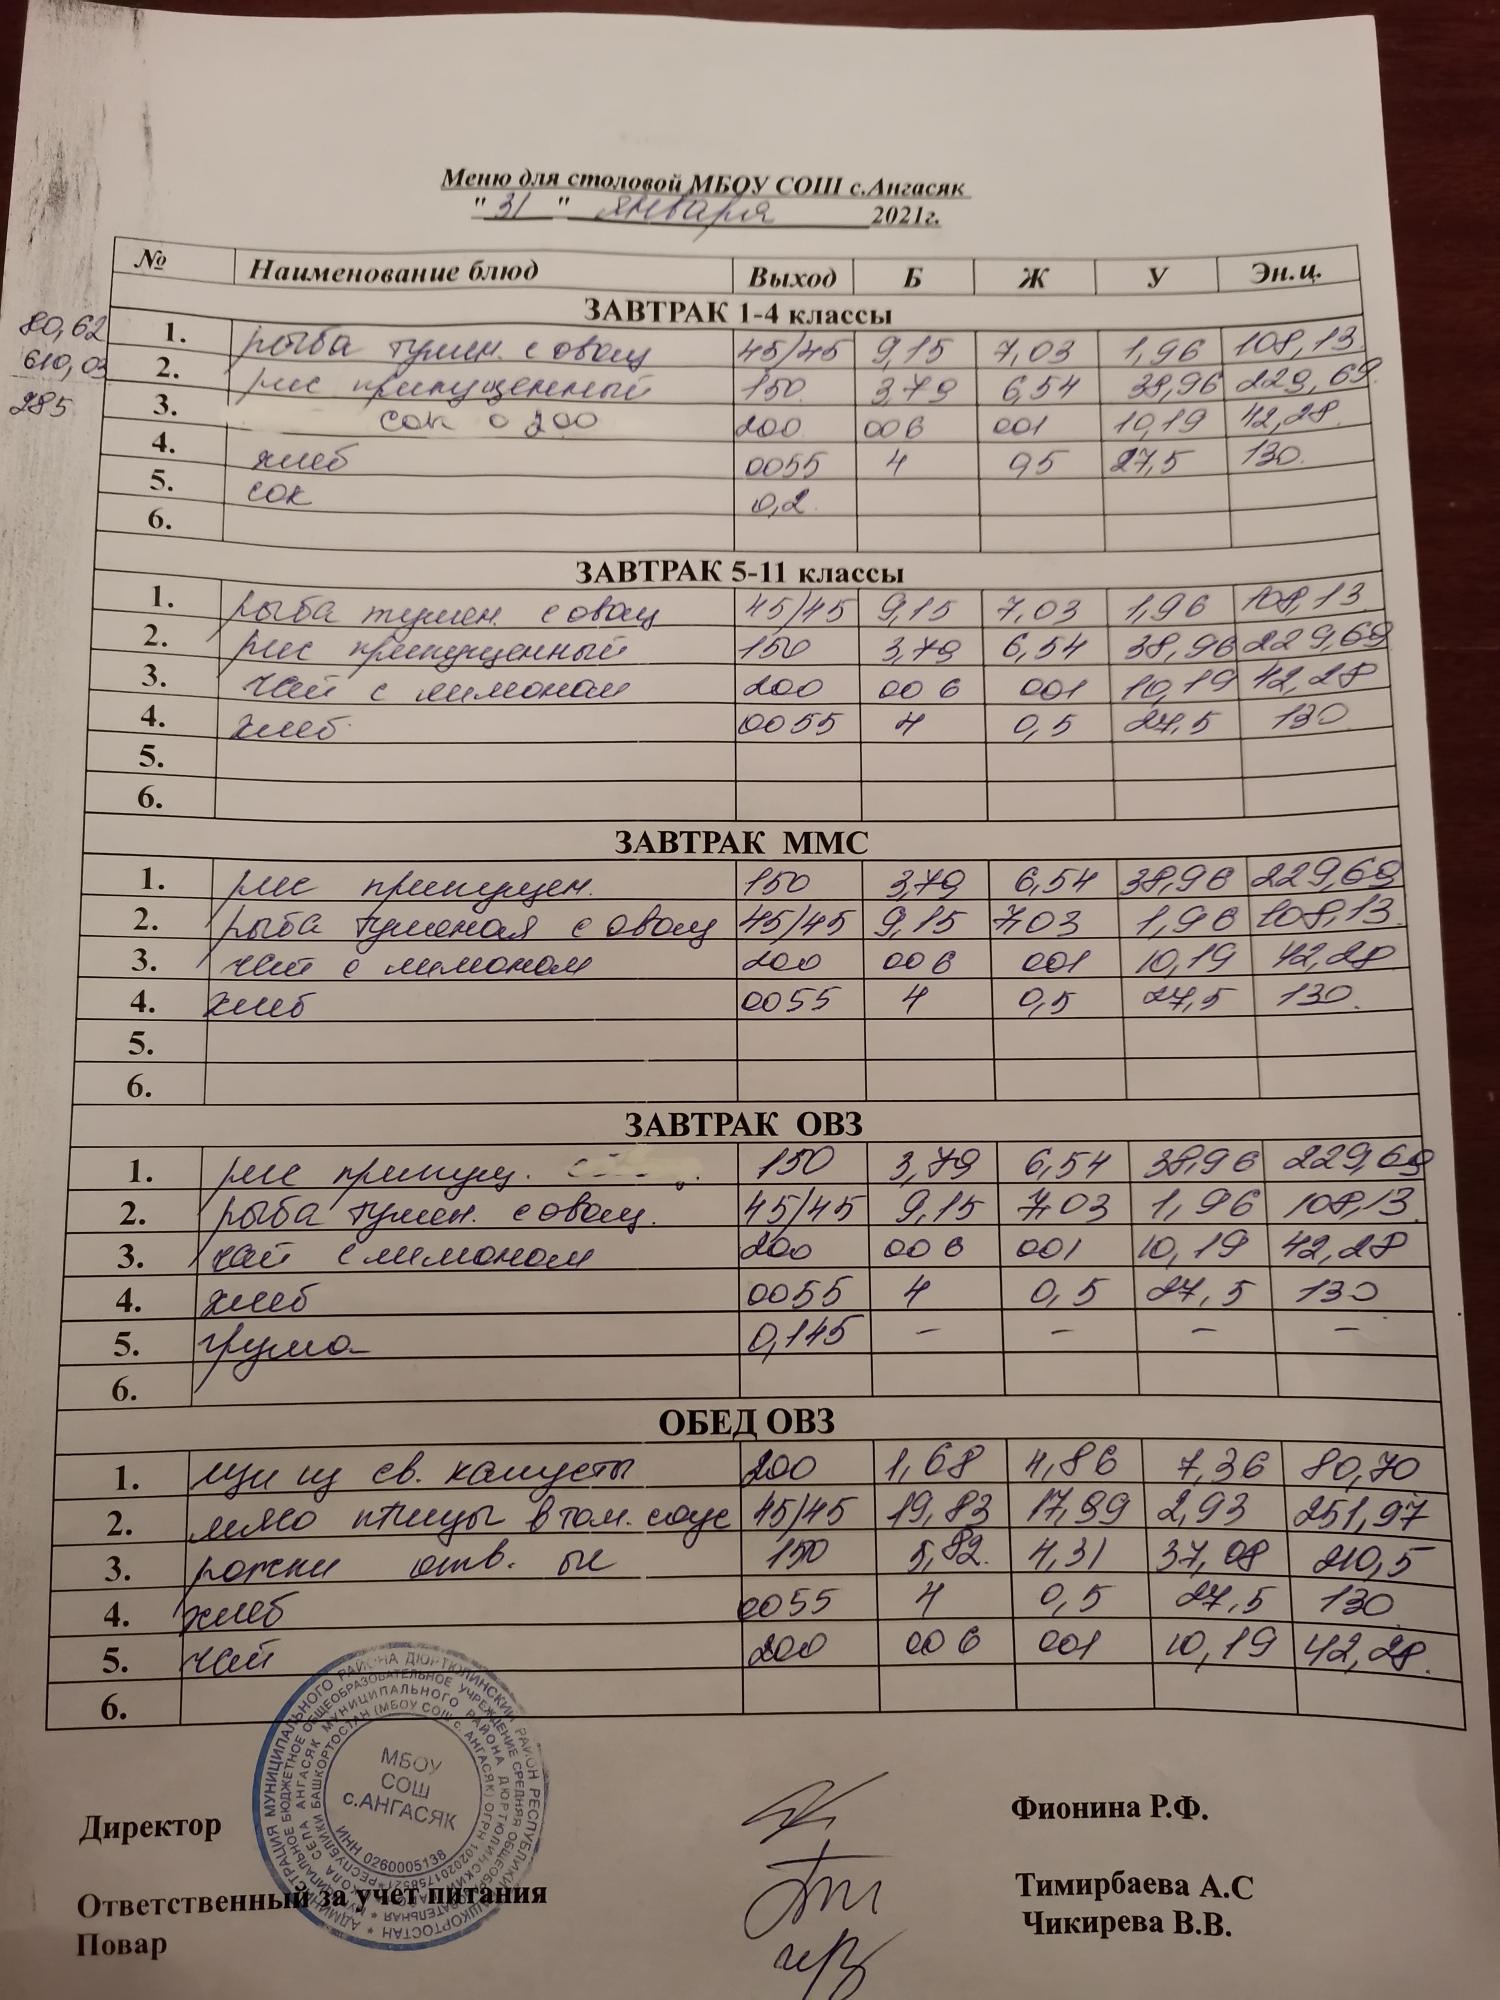 Меню для столовой МБОУ СОШ с.Ангасяк
" 31 " января 2021г.
№ Наименование блюд Выход Б Ж У Эн.ц.
ЗАВТРАК 1-4 классы
80,62
610,03
285
1. рыба тушен. с овощ 45/45 9,15 7,03 1,96 108,13
2. рис припущенный 150 3,79 6,54 38,96 229,69
3. сок 0 200 200 006 001 10,19 42,28
4. хлеб 0055 4 95 27,5 130
5. сок 0,2
6.
ЗАВТРАК 5-11 классы
1. рыба тушен. с овощ 45/45 9,15 7,03 1,96 108,13
2. рис припущенный 150 3,79 6,54 38,96 229,69
3. чай с лимоном 200 006 001 10,19 42,28
4. хлеб 0055 4 0,5 27,5 130
5.
6.
ЗАВТРАК ММС
1. рис припущен. 150 3,79 6,54 38,96 229,69
2. рыба тушоная с овощ 45/45 9,15 7,03 1,96 108,13
3. чай с лимоном 200 006 001 10,19 42,28
4. хлеб 0055 4 0,5 27,5 130
5.
6.
ЗАВТРАК ОВЗ
1. рис припущ. 150 3,79 6,54 38,96 229,69
2. рыба тушен. с овощ. 45/45 9,15 7,03 1,96 108,13
3. чай с лимоном 200 006 001 10,19 42,28
4. хлеб 0055 4 0,5 27,5 130
5. груша 0,145 – – – –
6.
ОБЕД ОВЗ
1. щи из св. капусты 200 1,68 4,86 7,36 80,70
2. мясо птицы в том. соус 45/45 19,83 17,99 2,93 251,97
3. рожки отв. 150 5,82 4,31 37,08 210,5
4. хлеб 0055 4 0,5 27,5 130
5. чай 200 006 001 10,19 42,28
6.
МБОУ
СОШ
с.АНГАСЯК
ИНН 0260005138
Директор Фионина Р.Ф.
Ответственный за учет питания Тимирбаева А.С
Повар Чикирева В.В.